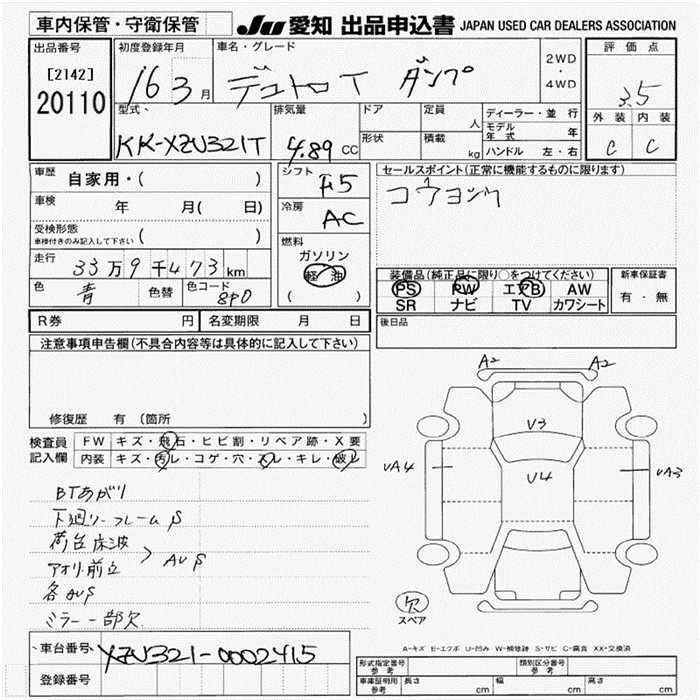 車内保管・守衛保管
JU 愛知 出品申込書 JAPAN USED CAR DEALERS ASSOCIATION
出品番号
[2142]
20110
初度登録年月
16 3 月
車名・グレード
デュトロ ダンプ
2WD
・
4WD
評価点
3.5
外装 内装
C C
型式、
KK-XZU321T
排気量
4.89 CC
ドア
形状
定員
人
積載
kg
ディーラー・並行
モデル年式 年
ハンドル 左・右
車歴 自家用・( )
車検 年 月( 日)
受検形態
車検付きのみ記入して下さい ( )
走行 33万9千473 km
色 青 色替 色コード 8P0
シフト F5
冷房 AC
燃料
ガソリン
軽油
( )
セールスポイント(正常に機能するものに限ります)
コウヨンク
装備品(純正品に限り○をつけてください)
PS PW エアB AW
SR ナビ TV カワシート
新車保証書
有・無
R券 円 名変期限 月 日
後日品
注意事項申告欄(不具合内容等は具体的に記入して下さい)
修復歴 有 (箇所 )
検査員記入欄
FW キズ・飛石・ヒビ割・リペア跡・X要
内装 キズ・汚レ・コゲ・穴・スレ・キレ・破レ
BTあがり
下廻リーフレームS
荷台床波
アオリ前立 > AUS
各AUS
ミラー一部欠
A2 A2
V3
UA4 U4 UA3
欠
スペア
A-キズ E-エクボ U-凹み W-補修跡 S-サビ C-腐食 XX-交換済
車台番号 XZU321-0002415
登録番号
形式指定番号 参考
類別区分番号 参考
車庫証明用 参考 長さ cm 幅 cm 高さ cm